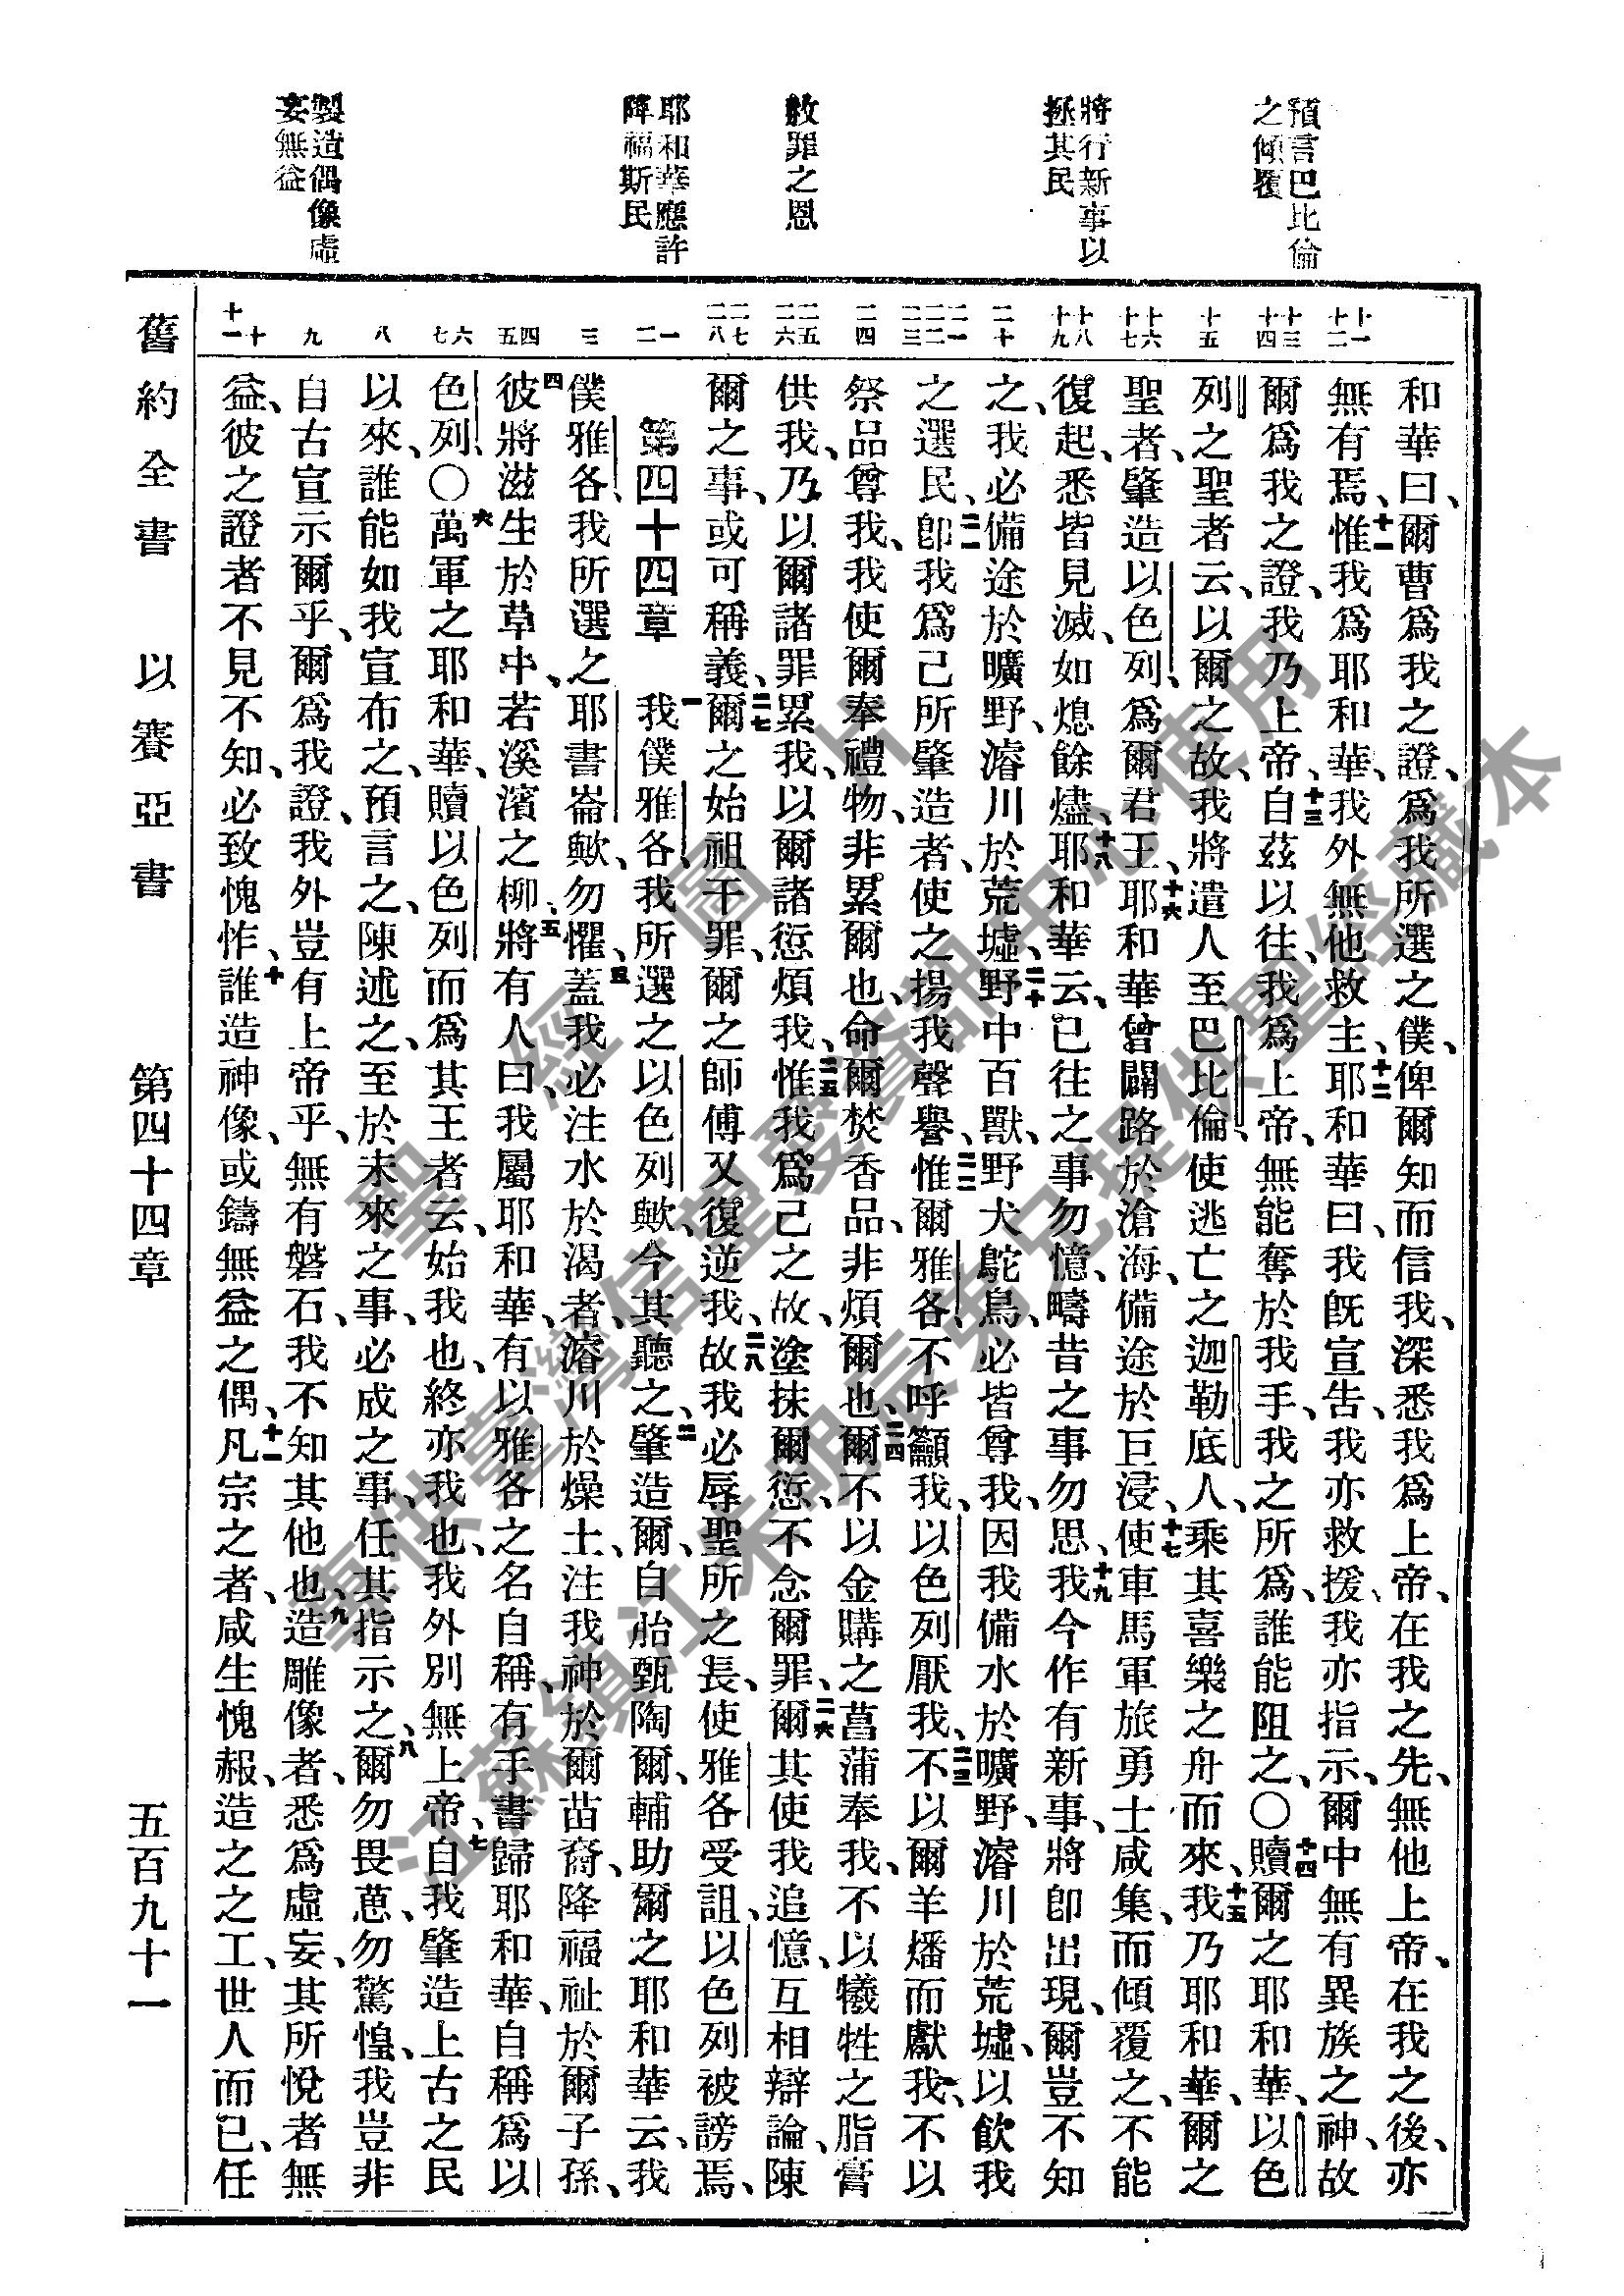 預言巴比倫
之傾覆
將行新事以
拯其民
赦罪之恩
耶和華應許
降福斯民
製造偶像虛
妄無益
十一
十二
十三
十四
十五
十六
十七
十八
十九
二十
二一
二二
二三
二四
二五
二六
二七
二八
一
二
三
四
五
六
七
八
九
十
十一
和華曰、爾曹爲我之證、爲我所選之僕、俾爾知而信我、深悉我爲上帝、在我之先、無他上帝、在我之後、亦
無有焉、十一惟我爲耶和華、我外無他救主、十二耶和華曰、我旣宣告、我亦救援、我亦指示、爾中無有異族之神、故
爾爲我之證、我乃上帝、十三自茲以往、我爲上帝、無能奪於我手、我之所爲、誰能阻之、〇十四贖爾之耶和華、以色
列之聖者云、以爾之故、我將遣人至巴比倫、使逃亡之迦勒底人、乘其喜樂之舟而來、十五我乃耶和華、爾之
聖者、肇造以色列、爲爾君王、十六耶和華曾闢路於滄海、備途於巨浸、十七使車馬軍旅勇士咸集、而傾覆之、不能
復起、悉皆見滅、如熄餘燼、十八耶和華云、已往之事勿憶、疇昔之事勿思、十九我今作有新事、將卽出現、爾豈不知
之、我必備途於曠野、濬川於荒墟、二十野中百獸、野犬鴕鳥、必皆尊我、因我備水於曠野、濬川於荒墟、以飲我
之選民、二一卽我爲己所肇造者、使之揚我聲譽、二二惟爾雅各、不呼籲我、以色列厭我、二三不以爾羊燔而獻我、不以
祭品尊我、我使爾奉禮物、非累爾也、命爾焚香品、非煩爾也、二四爾不以金購之菖蒲奉我、不以犧牲之脂膏
供我、乃以爾諸罪累我、以爾諸愆煩我、二五惟我爲己之故、塗抹爾愆、不念爾罪、二六爾其使我追憶、互相辯論、陳
爾之事、或可稱義、二七爾之始祖干罪、爾之師傅又復逆我、二八故我必辱聖所之長、使雅各受詛、以色列被謗焉、
第四十四章 一我僕雅各、我所選之以色列歟、今其聽之、二肇造爾、自胎甄陶爾、輔助爾之耶和華云、我
僕雅各、我所選之耶書崙歟、勿懼、三蓋我必注水於渴者、濬川於燥土、注我神於爾苗裔、降福祉於爾子孫、
四彼將滋生於草中、若溪濱之柳、五將有人曰、我屬耶和華、有以雅各之名自稱、有手書歸耶和華、自稱爲以
色列、〇六萬軍之耶和華、贖以色列而爲其王者云、始我也、終亦我也、我外別無上帝、七自我肇造上古之民
以來、誰能如我宣布之、預言之、陳述之、至於未來之事、必成之事、任其指示之、八爾勿畏葸、勿驚惶、我豈非
自古宣示爾乎、爾爲我證、我外豈有上帝乎、無有磐石、我不知其他也、九造雕像者、悉爲虛妄、其所悅者無
益、彼之證者不見不知、必致愧怍、十誰造神像、或鑄無益之偶、十一凡宗之者、咸生愧赧、造之之工、世人而已、任
舊約全書 以賽亞書 第四十四章 五百九十一
聖經圖片
專供臺灣信望愛資訊中心使用
江蘇鎮江朱明辰弟兄提供聖經藏本